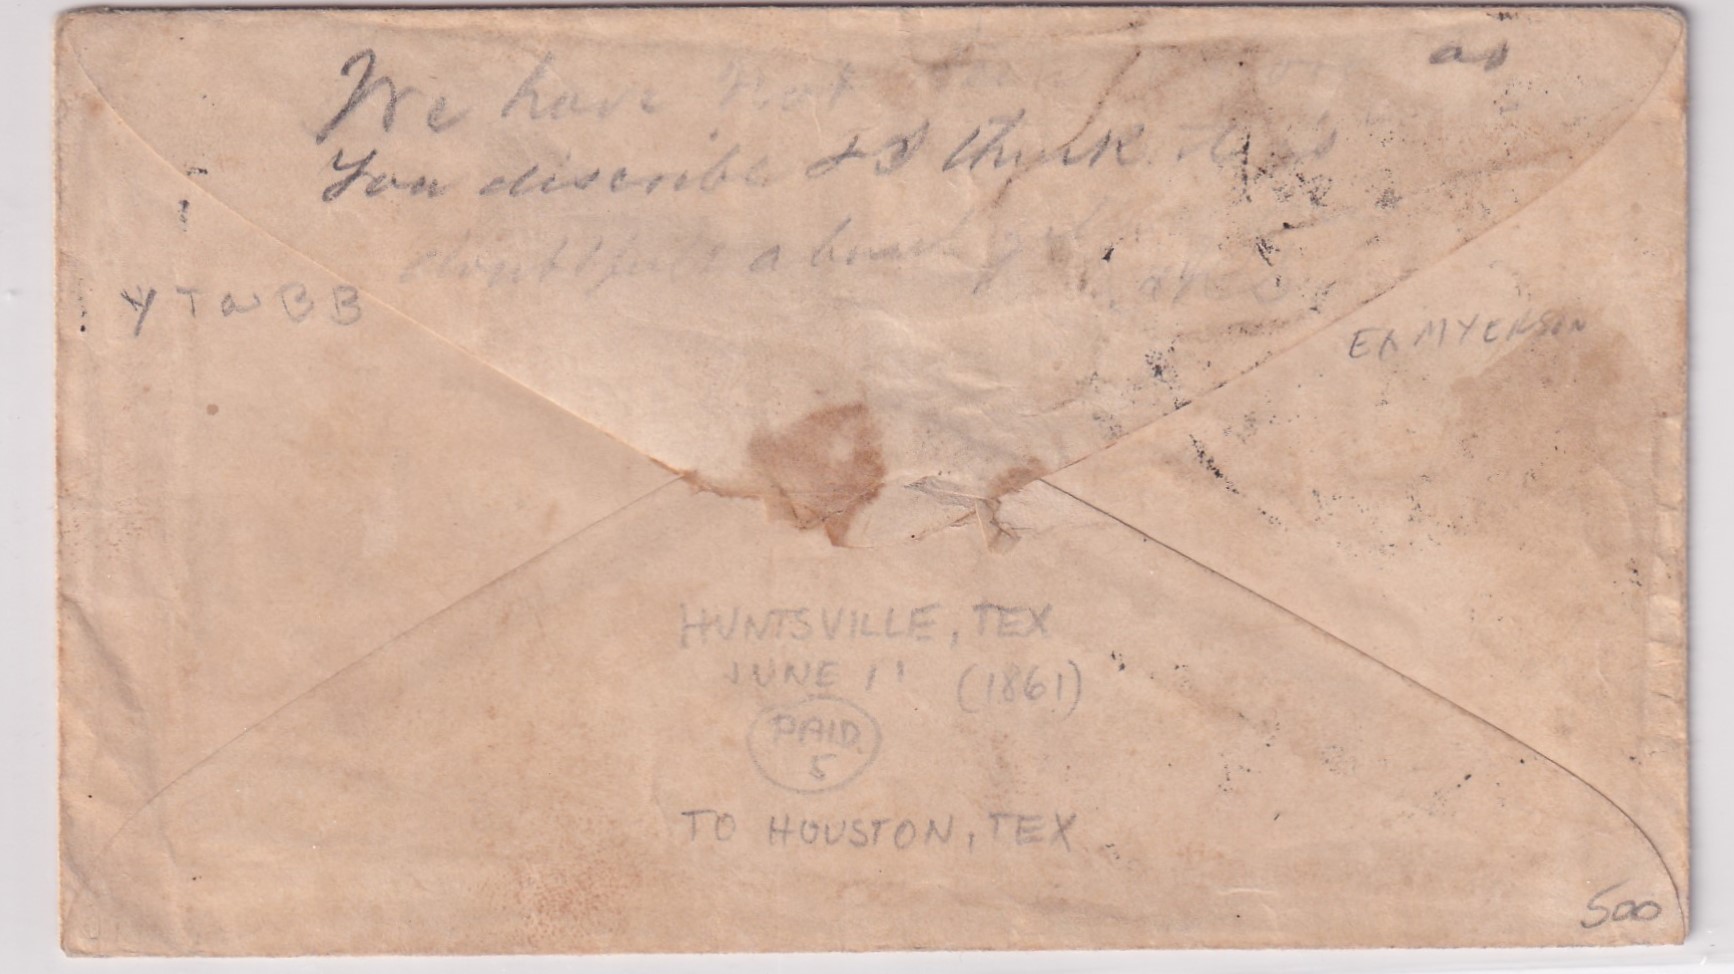 We have not as
You describe & I think
doubtful a
Y T W B B
EX MYERSON
HUNTSVILLE, TEX
JUNE 11 (1861)
PAID
5
TO HOUSTON, TEX
500